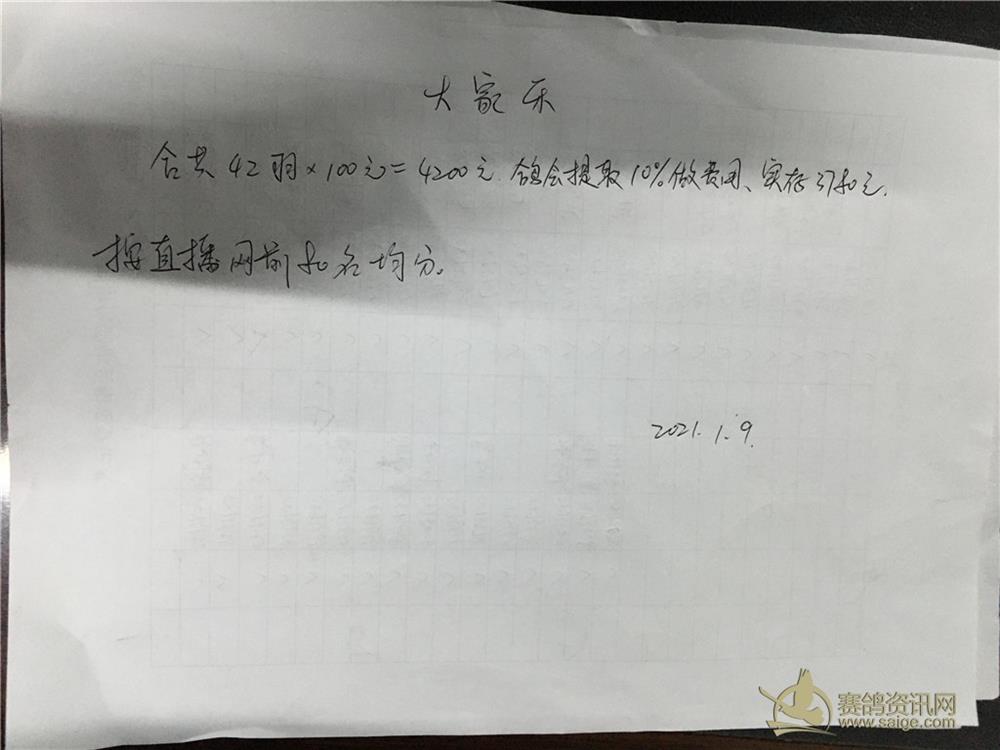 大家乐
合共42羽×100元=4200元.鸽会提取10%做费用、实存3780元.
按直播网前30名均分。
2021.1.9.
赛鸽资讯网
www.saige.com